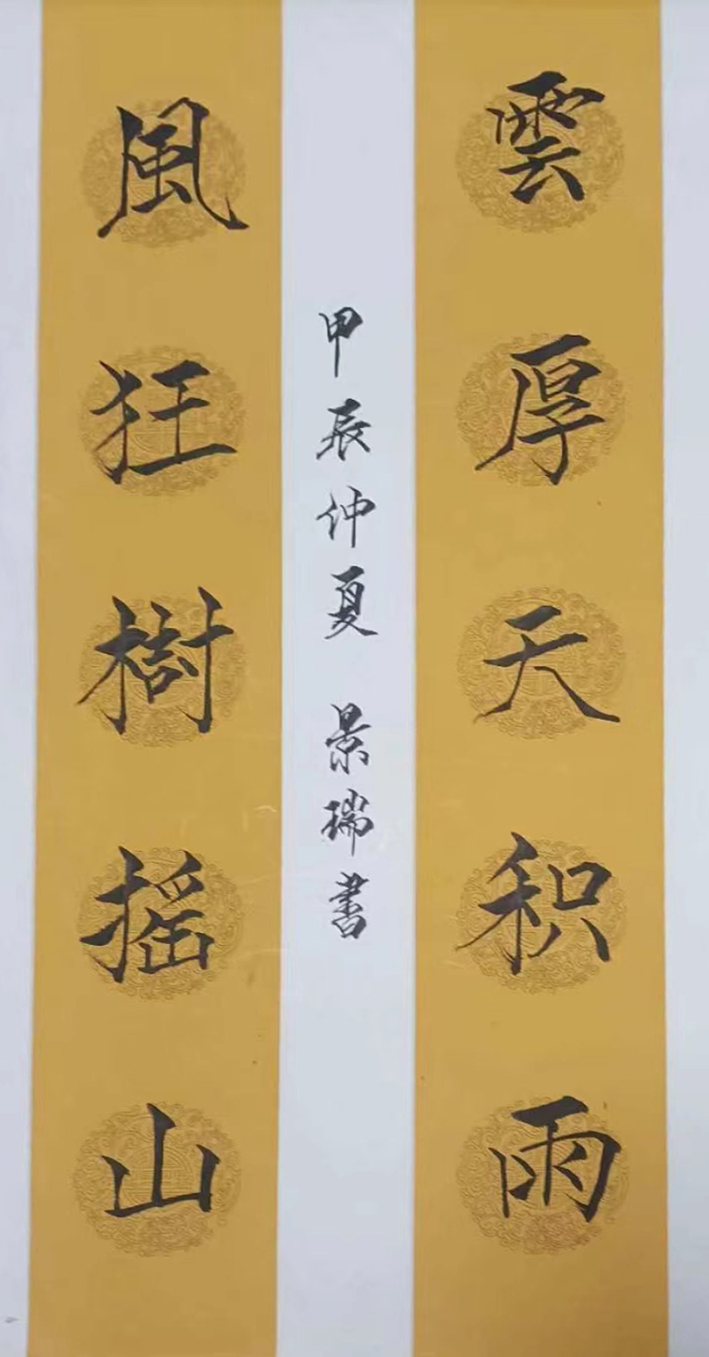 雲厚天积雨
風狂樹摇山
甲辰仲夏 景瑞书